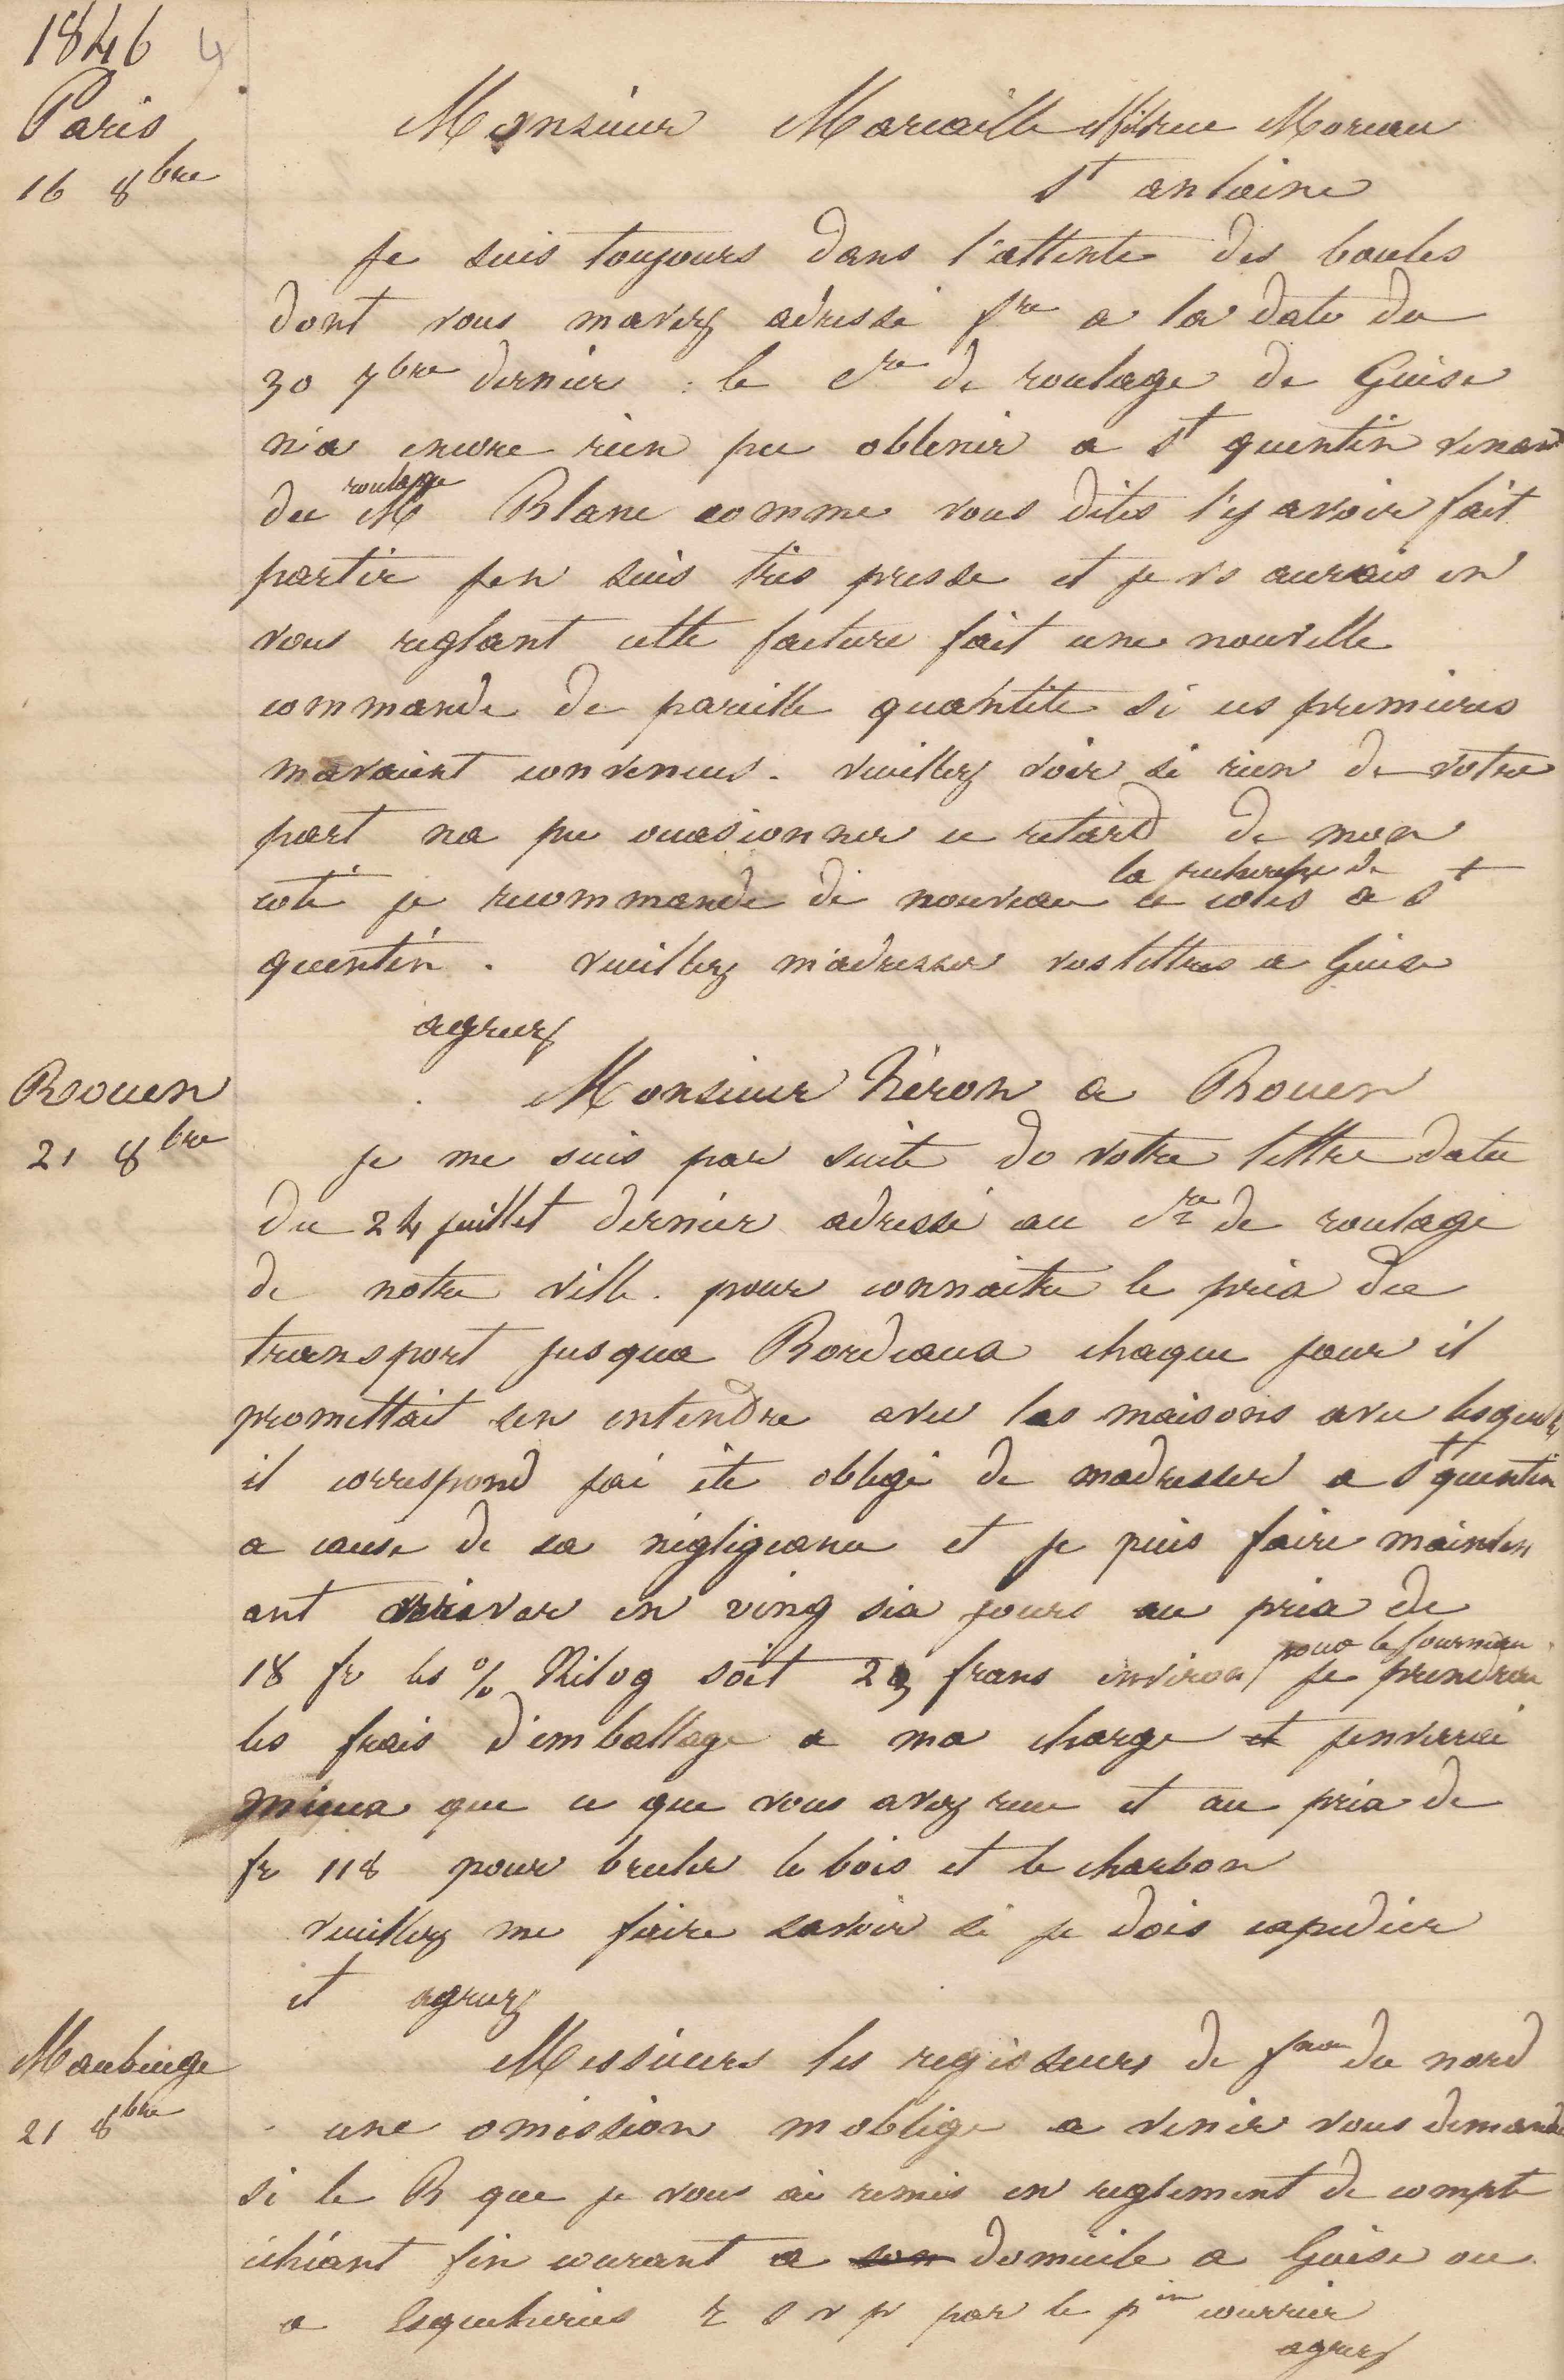 1846 4
Paris
16 8bre
Monsieur Marcaille rue Moreau
St antoine
Je suis toujours dans l'attente des boules
dont vous mavez adressé fre a la date du
30 7bre dernier : le Cre de roulage de Guise
n'a encore rien pu obtenir a St quentin venant
roulage
du M Blanc comme vous dites l'y avoir fait
partir jen suis tres presse et je vs aurais en
vous reglant cette facture fait une nouvelle
commande de pareille quantite si ces premieres
mavaient convenues. veuillez voir si rien de votre
part na pu occasionner ce retard de mon
la recherche de
coté je recommande de nouveau ce colis a St
quentin. veuillez m'adresser vos lettres a Guise
agreez
Rouen
21 8bre
Monsieur Néron a Rouen
je me suis par suite de votre lettre datee
du 24 juillet dernier adressé au Cre de roulage
de notre ville. pour connaitre le prix du
transport jusqua Bordeaux chaque jour il
promettait sen entendre avec les maisons avec lesquelles
il correspond jai été obligé de madresser a St quentin
a cause de sa négligeance et je puis faire mainten
ant arriver en ving six jours au prix de
pour le fourneau
18 fr les % Kilog soit 23 frans environ je prendrai
les frais d'emballage a ma charge et jenverrai
mieux que ce que vous avez reçu et au prix de
fr 118 pour bruler le bois et le charbon
veuillez me faire savoir si je dois expedier
et agreez
Maubeuge
21 8bre
Messieurs les regisseurs de fron du nord
une omission moblige a venir vous demander
si le B que je vous ai remis en reglement de compte
échéant fin courant a son domicile a Guise ou
a Esqueheries r s v p par le pin courrier
agreez